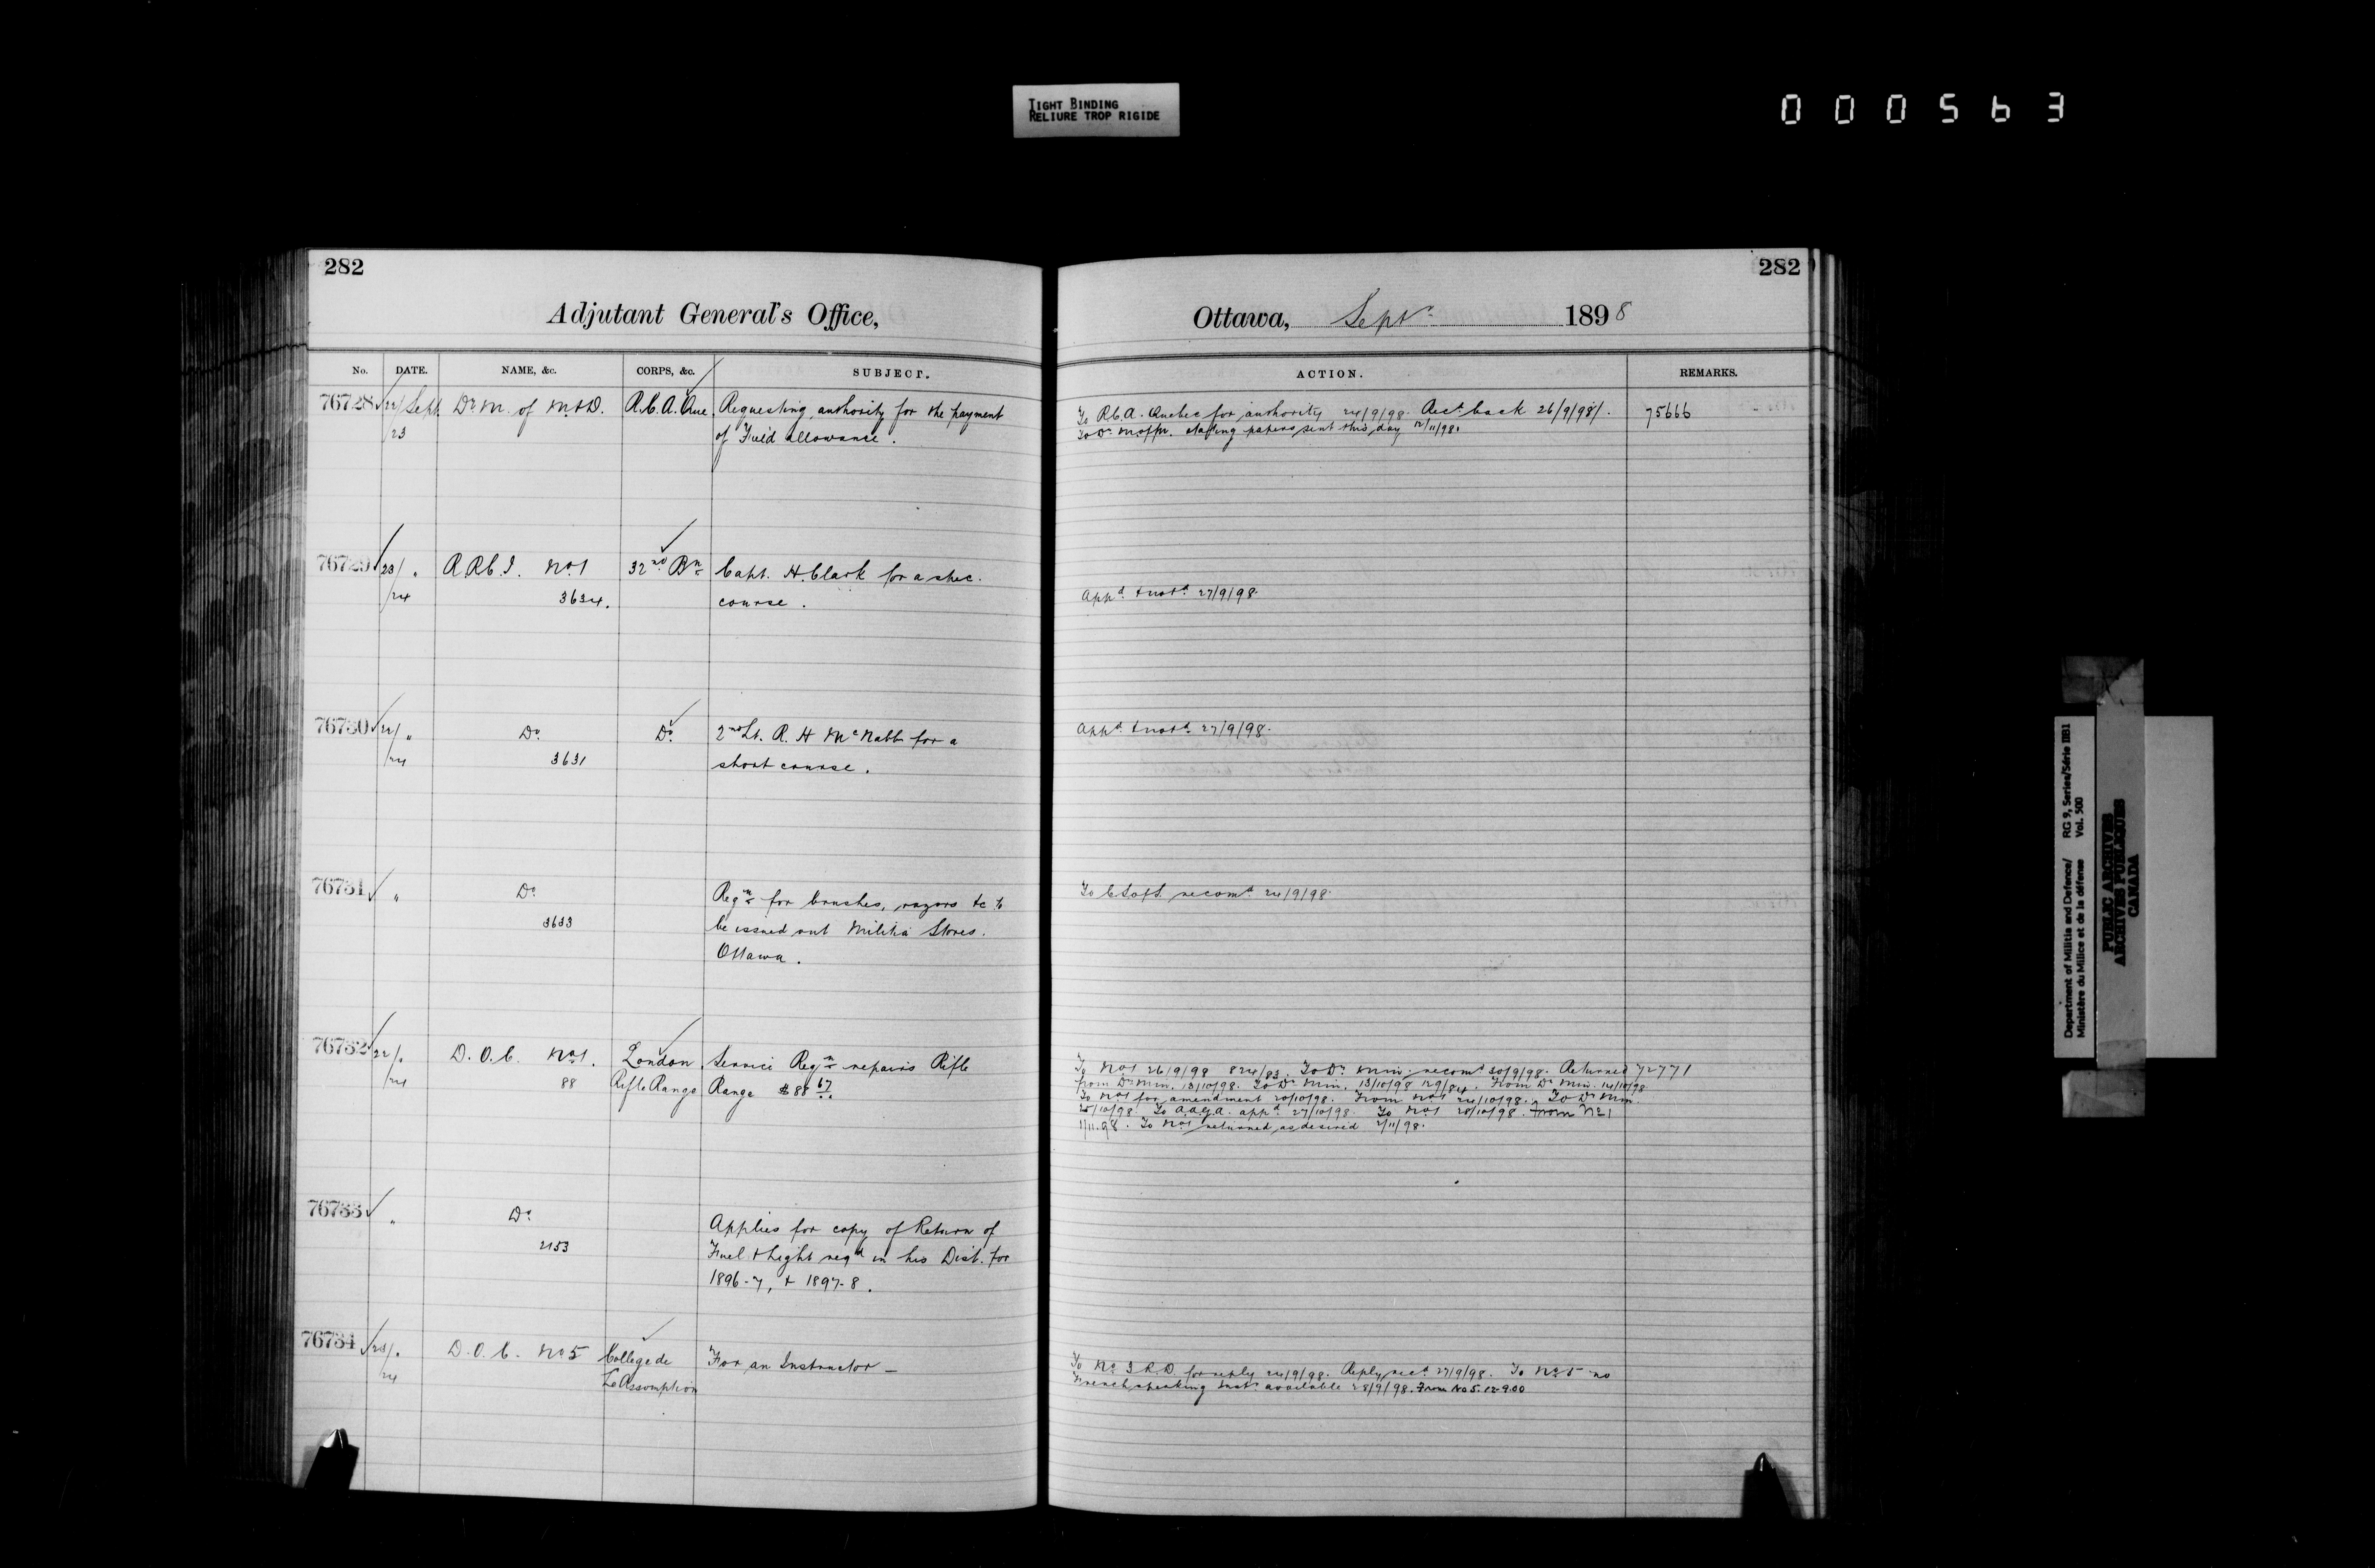 TIGHT BINDING
RELIURE TROP RIGIDE
000563
282
Adjutant General's Office,
No. DATE. NAME, &c. CORPS, &c. SUBJECT.
76728 22/Sept Dr M. of M&D. R.C.A. Que. Requesting authority for the payment
/23 of Field allowance.
76729 23/ " R.R.C.I. No 1 32nd Bn Capt. H. Clark for a spec.
/24 3634. course.
76730 22/ " Do. Do. 2nd Lt. R. H McNabb for a
/24 3631 short course.
76731 " Do Reqn for brushes, razors &c to
3633 be issued out Militia Stores.
Ottawa.
76732 22/ " D.O.C. No 1. London Service Reqn repairs Rifle
/24 88 Rifle Range Range $88 67
76733 " Do Applies for copy of Return of
2153 Fuel & Light reqd in his Dist. for
1896-7, & 1897-8.
76734 23/ " D.O.C. No 5 College de For an Instructor —
/24 L'Assomption
282
Ottawa, Sept. 1898
ACTION. REMARKS.
To R.C.A. Quebec for authority 24/9/98. Recd back 26/9/98. 75666
papers sent this day 12/11/98.
Appd & notd. 27/9/98.
Appd & notd. 27/9/98.
To C.S. of S. recomd 24/9/98.
To No 1 26/9/98 824/83. To Dr Min. recomd 30/9/98. Returned 72771
from Dr Min. 13/10/98. To Dr Min. 13/10/98 129/84. From Dr Min. 14/10/98.
To No 1 for amendment 20/10/98. From No 1 24/10/98. To Dr Min.
25/10/98. To A.A.G.A. appd 27/10/98. To No 1 28/10/98. From No 1
1/11.98. To No 1 returned as desired 2/11/98.
To No 3 R.D. for reply 24/9/98. Reply recd 27/9/98. To No 5 no
French speaking Instr available 28/9/98. From No 5. 12-9.00
Department of Militia and Defence/ RG 9, Series/Série IIB1
Ministère du Milice et de la défense Vol. 500
PUBLIC ARCHIVES
ARCHIVES PUBLIQUES
CANADA